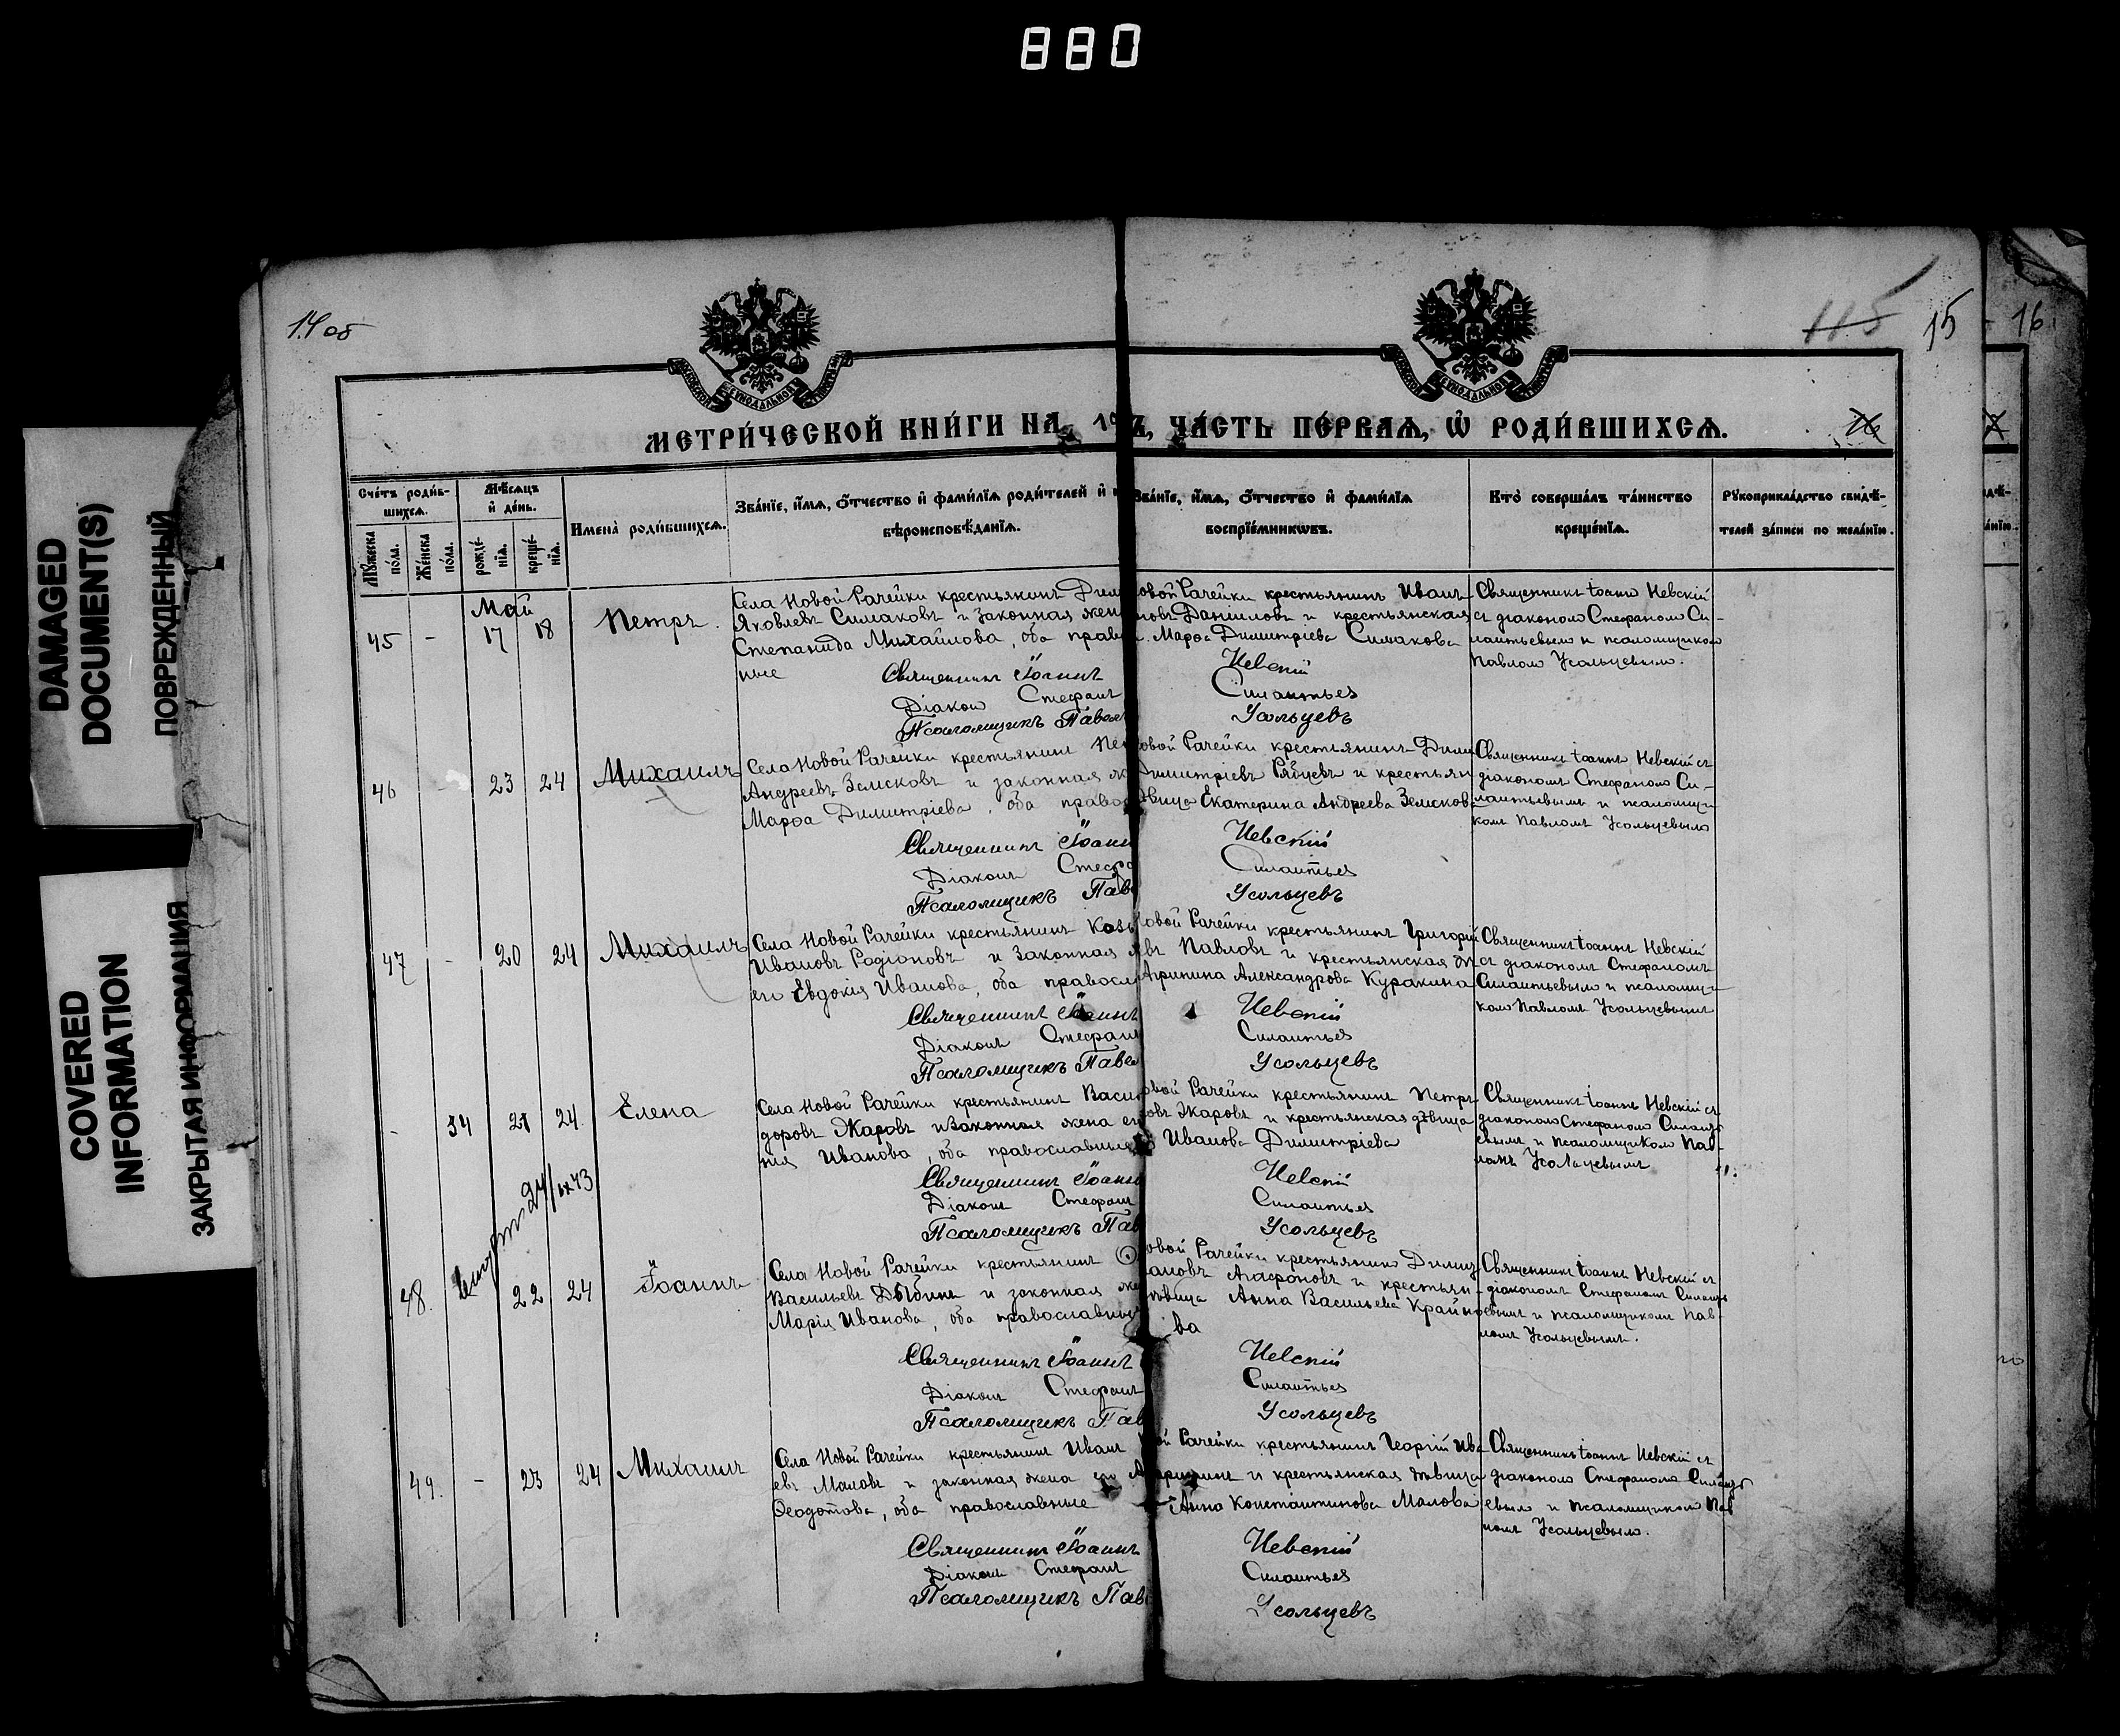 880
DAMAGED
DOCUMENT(S)
ПОВРЕЖДЕННЫЙ
COVERED
INFORMATION
ЗАКРЫТАЯ ИНФОРМАЦИЯ
14 об
115 15 16
МЕТРИ́ЧЕСКОЙ КНИ́ГИ НА 19
Ъ, ЧА́СТЬ ПЕ́РВАѦ, Ѽ РОДИ́ВШИХСѦ.
Сче́тъ роди́в-
шихсѧ.
Мꙋ́жеска по́ла.
Же́нска по́ла.
Мѣ́сѧцъ
и҆ де́нь.
рожде́-нїѧ.
креще́-нїѧ.
Имена̀ роди́вшихсѧ.
Зва́нїе, и҆́мѧ, ѻ҆́тчество и҆ фами́лїѧ роди́телей и҆
вѣроисповѣ́данїѧ.
Зва́нїе, и҆́мѧ, ѻ҆́тчество и҆ фами́лїѧ
воспрїе́мникѡвъ.
Кто̀ соверша́лъ та́инство
креще́нїѧ.
Рꙋкоприкла́дство свидѣ́-
телей за́писи по жела́нїю.
Май
45 - 17 18 Петръ.
Села Новой Рачейки крестьянинъ Дим
Яковлевъ Симаковъ и законная жен
Степанида Михайлова, оба прав
ные
Священникъ Іоаннъ
Діаконъ Стефанъ
Псаломщикъ Павел
овой Рачейки крестьянинъ Иванъ
новъ Даниловъ и крестьянская
Марѳа Димитріева Симакова
Невскій
Силантьев
Усольцевъ
Священникъ Іоаннъ Невскій
съ діакономъ Стефаномъ Си-
лантьевымъ и псаломщикомъ
Павломъ Усольцевымъ.
46 - 23 24 Михаилъ
Села Новой Рачейки крестьянинъ Пе
Андреевъ Земсковъ и законная ж
Марѳа Димитріева, оба право
Священникъ Іоанн
Діаконъ Стеф
Псаломщикъ Пав
овой Рачейки крестьянинъ Дими
Димитріевъ Рябцевъ и крестьян
ѣвица Екатерина Андреева Земскова
Невскій
Силантьев
Усольцевъ
Священникъ Іоаннъ Невскій съ
діакономъ Стефаномъ Си-
лантьевымъ и псаломщи-
комъ Павломъ Усольцевымъ
47 - 20 24 Михаилъ
Села Новой Рачейки крестьянинъ Козь
Ивановъ Родіоновъ и законная ж
его Евдокія Иванова, оба правосл
Священникъ Іоаннъ
Діаконъ Стефан
Псаломщикъ Павел
овой Рачейки крестьянинъ Григорій
въ Павловъ и крестьянская д
Агрипина Александрова Куракина
Невскій
Силантьев
Усольцевъ
Священникъ Іоаннъ Невскій
съ діакономъ Стефаномъ
Силантьевымъ и псаломщи-
комъ Павломъ Усольцевымъ
- 34 21 24 Елена
Села Новой Рачейки крестьянинъ Васил
доровъ Жаровъ и законная жена ег
нія Иванова, оба православные
Священникъ Іоанн
Діаконъ Стефанъ
Псаломщикъ Пав
овой Рачейки крестьянинъ Петръ
овъ Жаровъ и крестьянская дѣвица
Иванова Димитріева
Невскій
Силантьев
Усольцевъ
Священникъ Іоаннъ Невскій съ
діакономъ Стефаномъ Силанть
евымъ и псаломщикомъ Пав-
ломъ Усольцевымъ
48. 22 24 Іоаннъ
Села Новой Рачейки крестьянинъ
Васильевъ Дыбинъ и законная же
Марія Иванова, оба православны
Священникъ Іоаннъ
Діаконъ Стефанъ
Псаломщикъ Пав
овой Рачейки крестьянинъ Димит
ановъ Агафоновъ и крестьян-
дѣвица Анна Васильева Крайно
ва
Невскій
Силантьев
Усольцевъ
Священникъ Іоаннъ Невскій съ
діакономъ Стефаномъ Силанть
евымъ и псаломщикомъ Пав-
ломъ Усольцевымъ.
49. - 23 24 Михаилъ
Села Новой Рачейки крестьянинъ Иванъ
евъ Маловъ и законная жена его А
Ѳеодотова, оба православные
Священникъ Іоаннъ
Діаконъ Стефанъ
Псаломщикъ Пав
ой Рачейки крестьянинъ Георгій Ива
и крестьянская дѣвица
Анна Константинова Малова
Невскій
Силантьев
Усольцевъ
Священникъ Іоаннъ Невскій съ
діакономъ Стефаномъ Силанть
евымъ и псаломщикомъ Пав
ломъ Усольцевымъ.